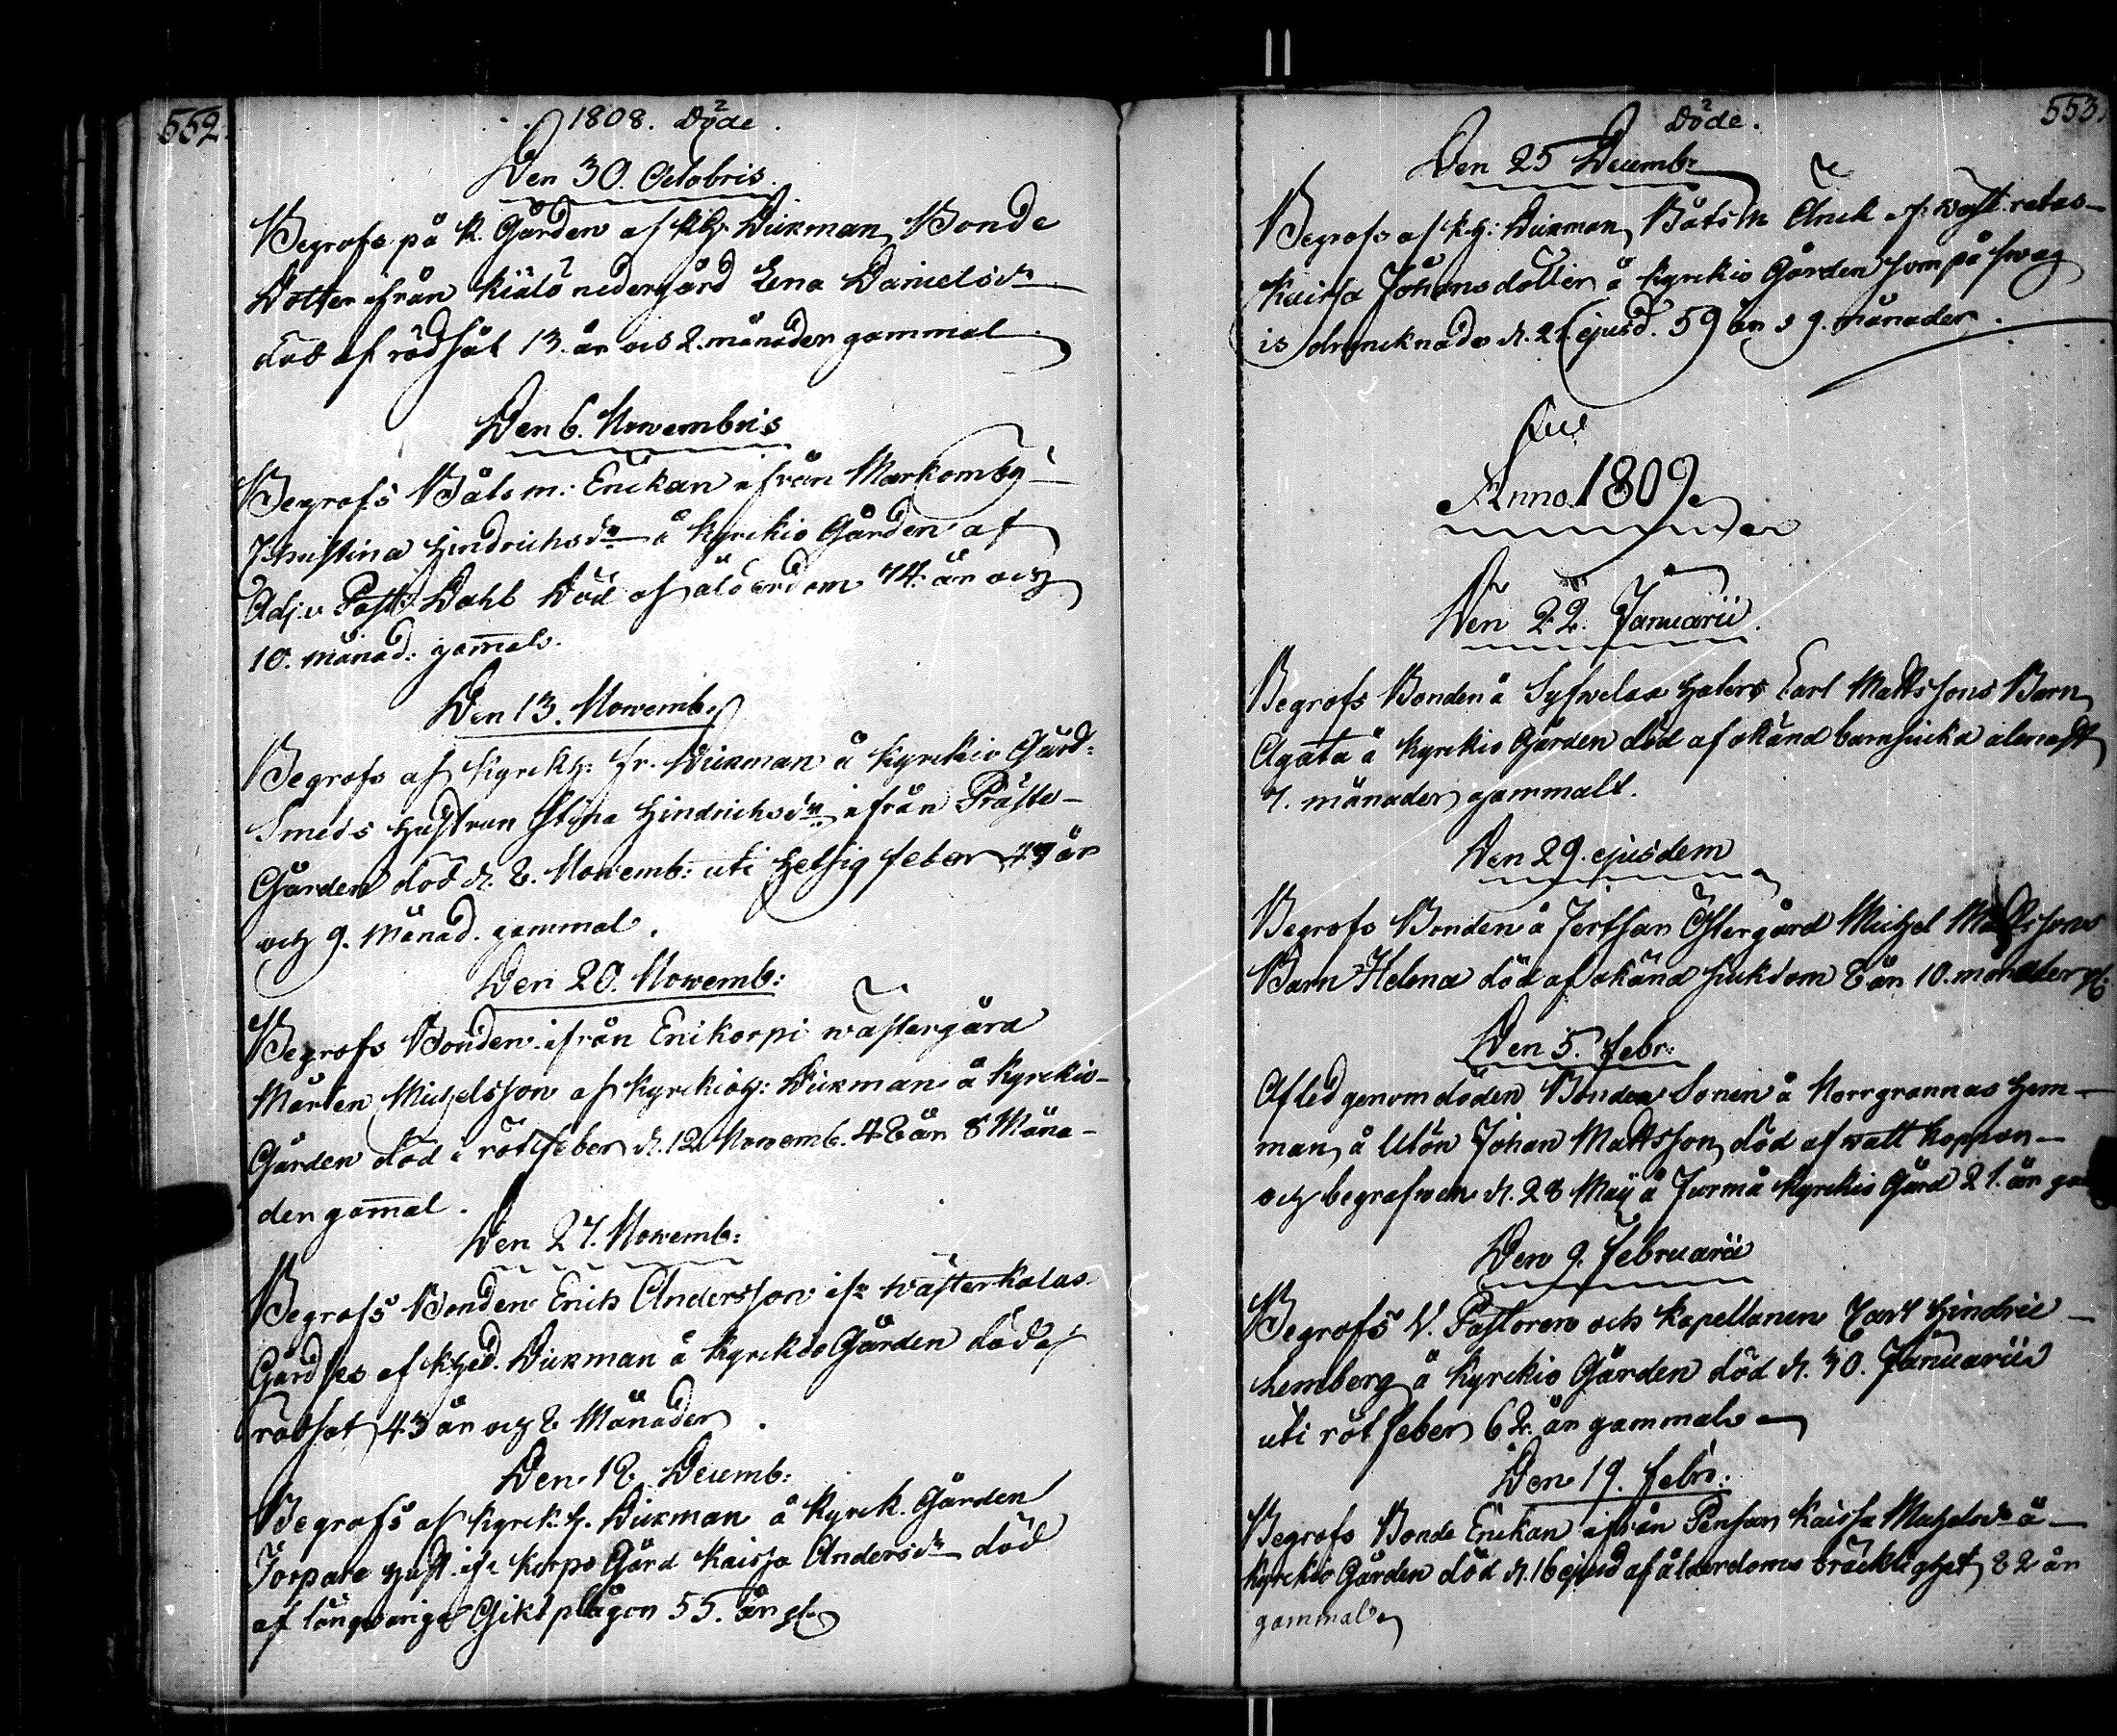 552.
1808. Döde.
Den 30. Octobris.
Begrofs på K. Gården af KH: Dickman Bonde
Dotter ifrån Kiälö nedergård Lena Danielsdr
död af rödsåt 13. år och 2. månader gammal
Den 6. Novembris
Begrofs Båtsm: Enckan ifrån Markomby
Christina Hindrichsdr å Kyrckio Gården af
Adj. Past: Dahl Död af ålderdom 74. år och
10. månad: gamal.
Den 13. Novemb:
Begrofs af Kyrckh: Hr. Dickman å Kyrckio Gård:
Smeds Hustrun Stina Hindrichsdr ifrån Präste-
Gården död d. 2. Novemb: uti Hetsig feber 47 år
och 9. Månad. gammal.
Den 20. Novemb:
Begrofs Bonden ifrån Enikorpi wästergård
Mårten Michelsson af Kyrckioh: Dickman å Kyrckio-
Gården död i rötfeber d. 12 Novemb. 42 år 8 Måna-
der gamal.
Den 27. Novemb:
Begrofs Bonden Erich Andersson ifr wästerkalas
Gård af Dickman å Kyrckio Gården död af
rödsot 43 år och 2 Månader.
Den 12. Decemb:
Begrofs af Kyrck.h. Dickman å Kyrck. Gården
Torpare Hust. ifr Korpo Gård Kaisa Andersdr död
af långwarige Giktplågor 55. år gl.
553.
Döde.
Den 25 Decemb:
Begrofs af KH: Dickman Båtsm Enck. if: wäst. retas-
Kaisa Johansdotter å Kyrckio Gården som på swag
is drunknade d. 21. ejusd. 59 år 9. månader.
Anno 1809.
Den 22. Januarii.
Begrofs Bonden å Syfwelax Holers Carl Mattssons Barn
Agata å Kyrckio Gården död af okänd barnsiuka alenast
7. månader gammalt.
Den 29. ejusdem
Begrofs Bonden å Jertsar Östergård Michel Mattssons
Barn Helena död af okänd siukdom 2 år 10. månader gl.
Den 5. Febr:
Afled genom döden Bonde Sonen å Norrgrannas Hem-
man å Utön Johan Mattsson död af watt koppor
och begrafwen d. 28 Maij å Jurmå Kyrckio Gård 21. år
Den 9. Februarii
Begrofs V. Pastoren och Kapellanen Carl Hindric
Lemberg å Kyrckio Gården död d. 30. Januarii
uti rötfeber 62. år gammal
Den 19. Febr:
Begrofs Bonde Enckan ifrån Pensar Kaisa Matzdr å
Kyrckio Gården död d. 16 ejusd af ålderdoms bräcklighet 82 år
gammal